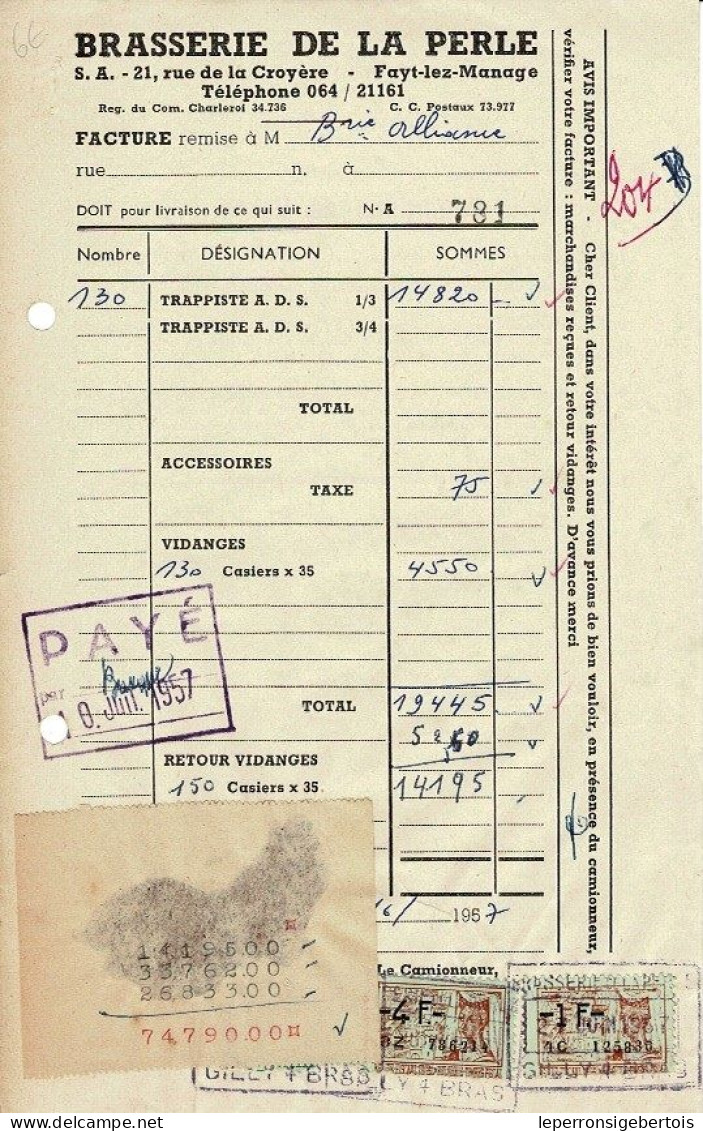 66
BRASSERIE DE LA PERLE
S. A. - 21, rue de la Croyère - Fayt-lez-Manage
Téléphone 064 / 21161
Reg. du Com. Charleroi 34.736 C. C. Postaux 73.977
FACTURE remise à M Brie Alliance
rue n. à
DOIT pour livraison de ce qui suit : N· A 781
Nombre DÉSIGNATION SOMMES
130 TRAPPISTE A. D. S. 1/3 14820
TRAPPISTE A. D. S. 3/4
TOTAL
ACCESSOIRES
TAXE 75
VIDANGES
130 Casiers x 35 4550
TOTAL 19445
5250
RETOUR VIDANGES
150 Casiers x 35 14195
PAYÉ
par Banque
10. JUIL. 1957
/6/ 1957
Le Camionneur,
14195.00
33762.00
26833.00
74790.00¤
-4F-
786214
-1F-
1C 125835
JUIN 1957
GILLY 4 BRAS
LY 4 BRAS
GILLY 4
AVIS IMPORTANT - Cher Client, dans votre intérêt nous vous prions de bien vouloir, en présence du camionneur,
vérifier votre facture : marchandises reçues et retour vidanges. D'avance merci
204
leperronsigebertois